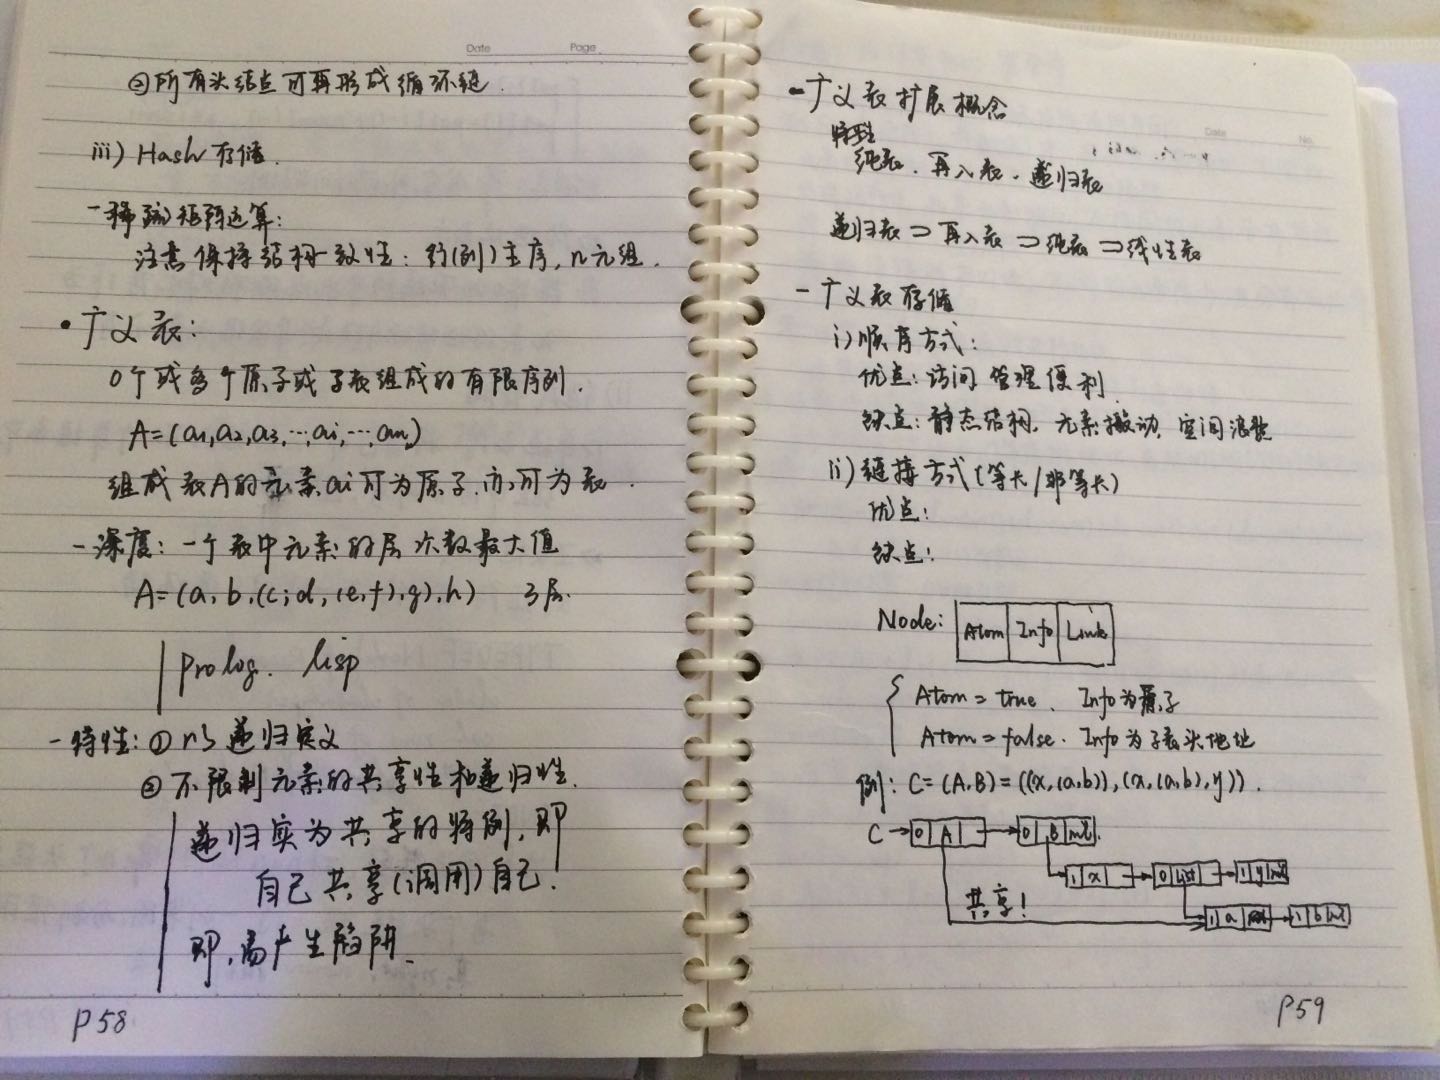 Date Page
②所有头结点可再形成循环链.
iii) Hash存储.
- 稀疏矩阵运算:
注意保持结构一致性: 行(列)主序, n元组.
• 广义表:
0个或多个原子或子表组成的有限序列.
A=(a1,a2,a3,…,ai,…,an)
组成表A的元素ai可为原子.亦可为表.
- 深度: 一个表中元素的层次数最大值
A=(a,b,(c,d,(e,f),g),h) 3层.
prolog. lisp
- 特性: ① 递归定义
② 不限制元素的共享性和递归性.
递归实为共享的特例, 即
自己共享(调用)自己.
即, 易产生陷阱.
P58
- 广义表扩展概念
Date No.
特性
纯表. 再入表. 递归表
递归表⊃再入表⊃纯表⊃线性表
- 广义表存储
i) 顺序方式:
优点: 访问管理便利
缺点: 静态结构, 元素搬动, 空间浪费
ii) 链接方式(等长/非等长)
优点:
缺点:
Node: Atom Info Link
Atom=true. Info为原子
Atom=false. Info为子表头地址
例: C=(A,B)=((x,(a,b)),(x,(a,b),y)).
C 0 A 0 B nil
1 x 0 list 1 y nil
共享! 1 a 1 b nil
P59